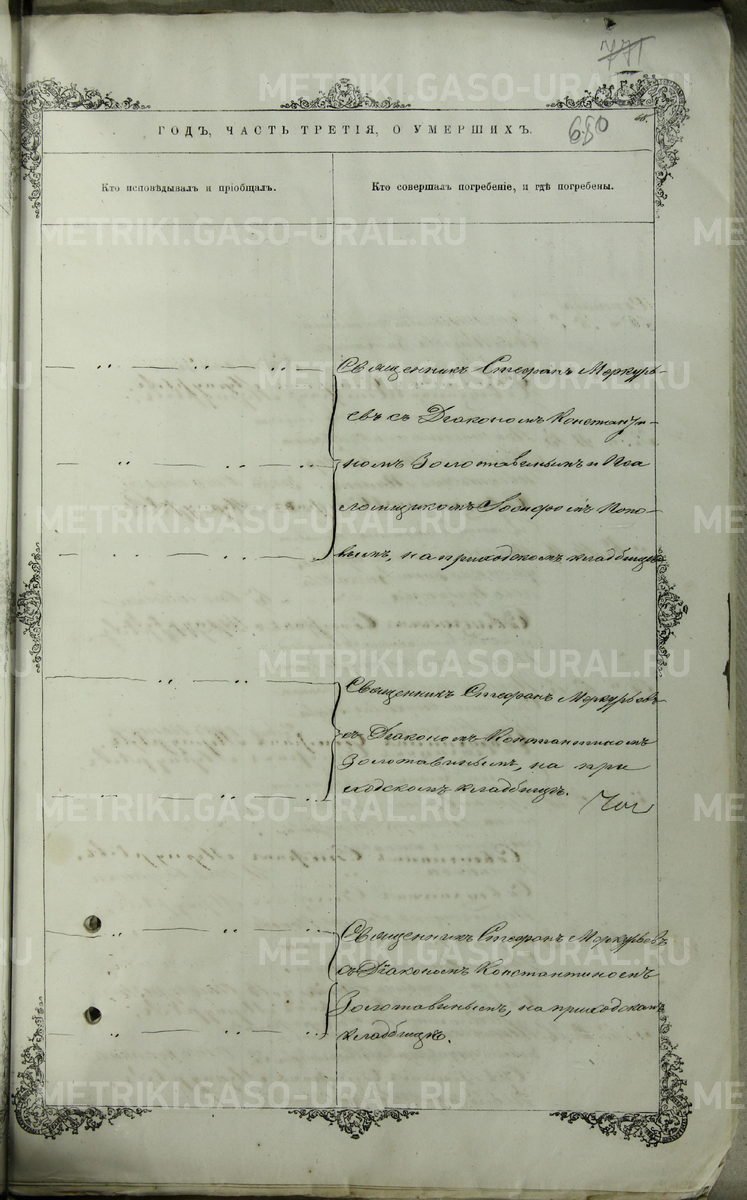 771
ГОДЪ, ЧАСТЬ ТРЕТІЯ, О УМЕРШИХЪ.
680
Кто исповѣдывалъ и пріобщалъ.
Кто совершалъ погребеніе, и гдѣ погребены.
Священникъ Стефанъ Меркурь-
евъ съ Діакономъ Константи-
номъ Золотавинымъ и Пса
ломщикомъ Попо-
вымъ, на приходскомъ кладбищѣ
Священникъ Стефанъ Меркурьевъ
съ Діакономъ Константиномъ
Золотавинымъ, на при
ходскомъ кладбищѣ.
Священникъ Стефанъ Меркурьевъ
съ Діакономъ Константиномъ
Золотавинымъ, на приходском
кладбищѣ.
METRIKI.GASO-URAL.RU